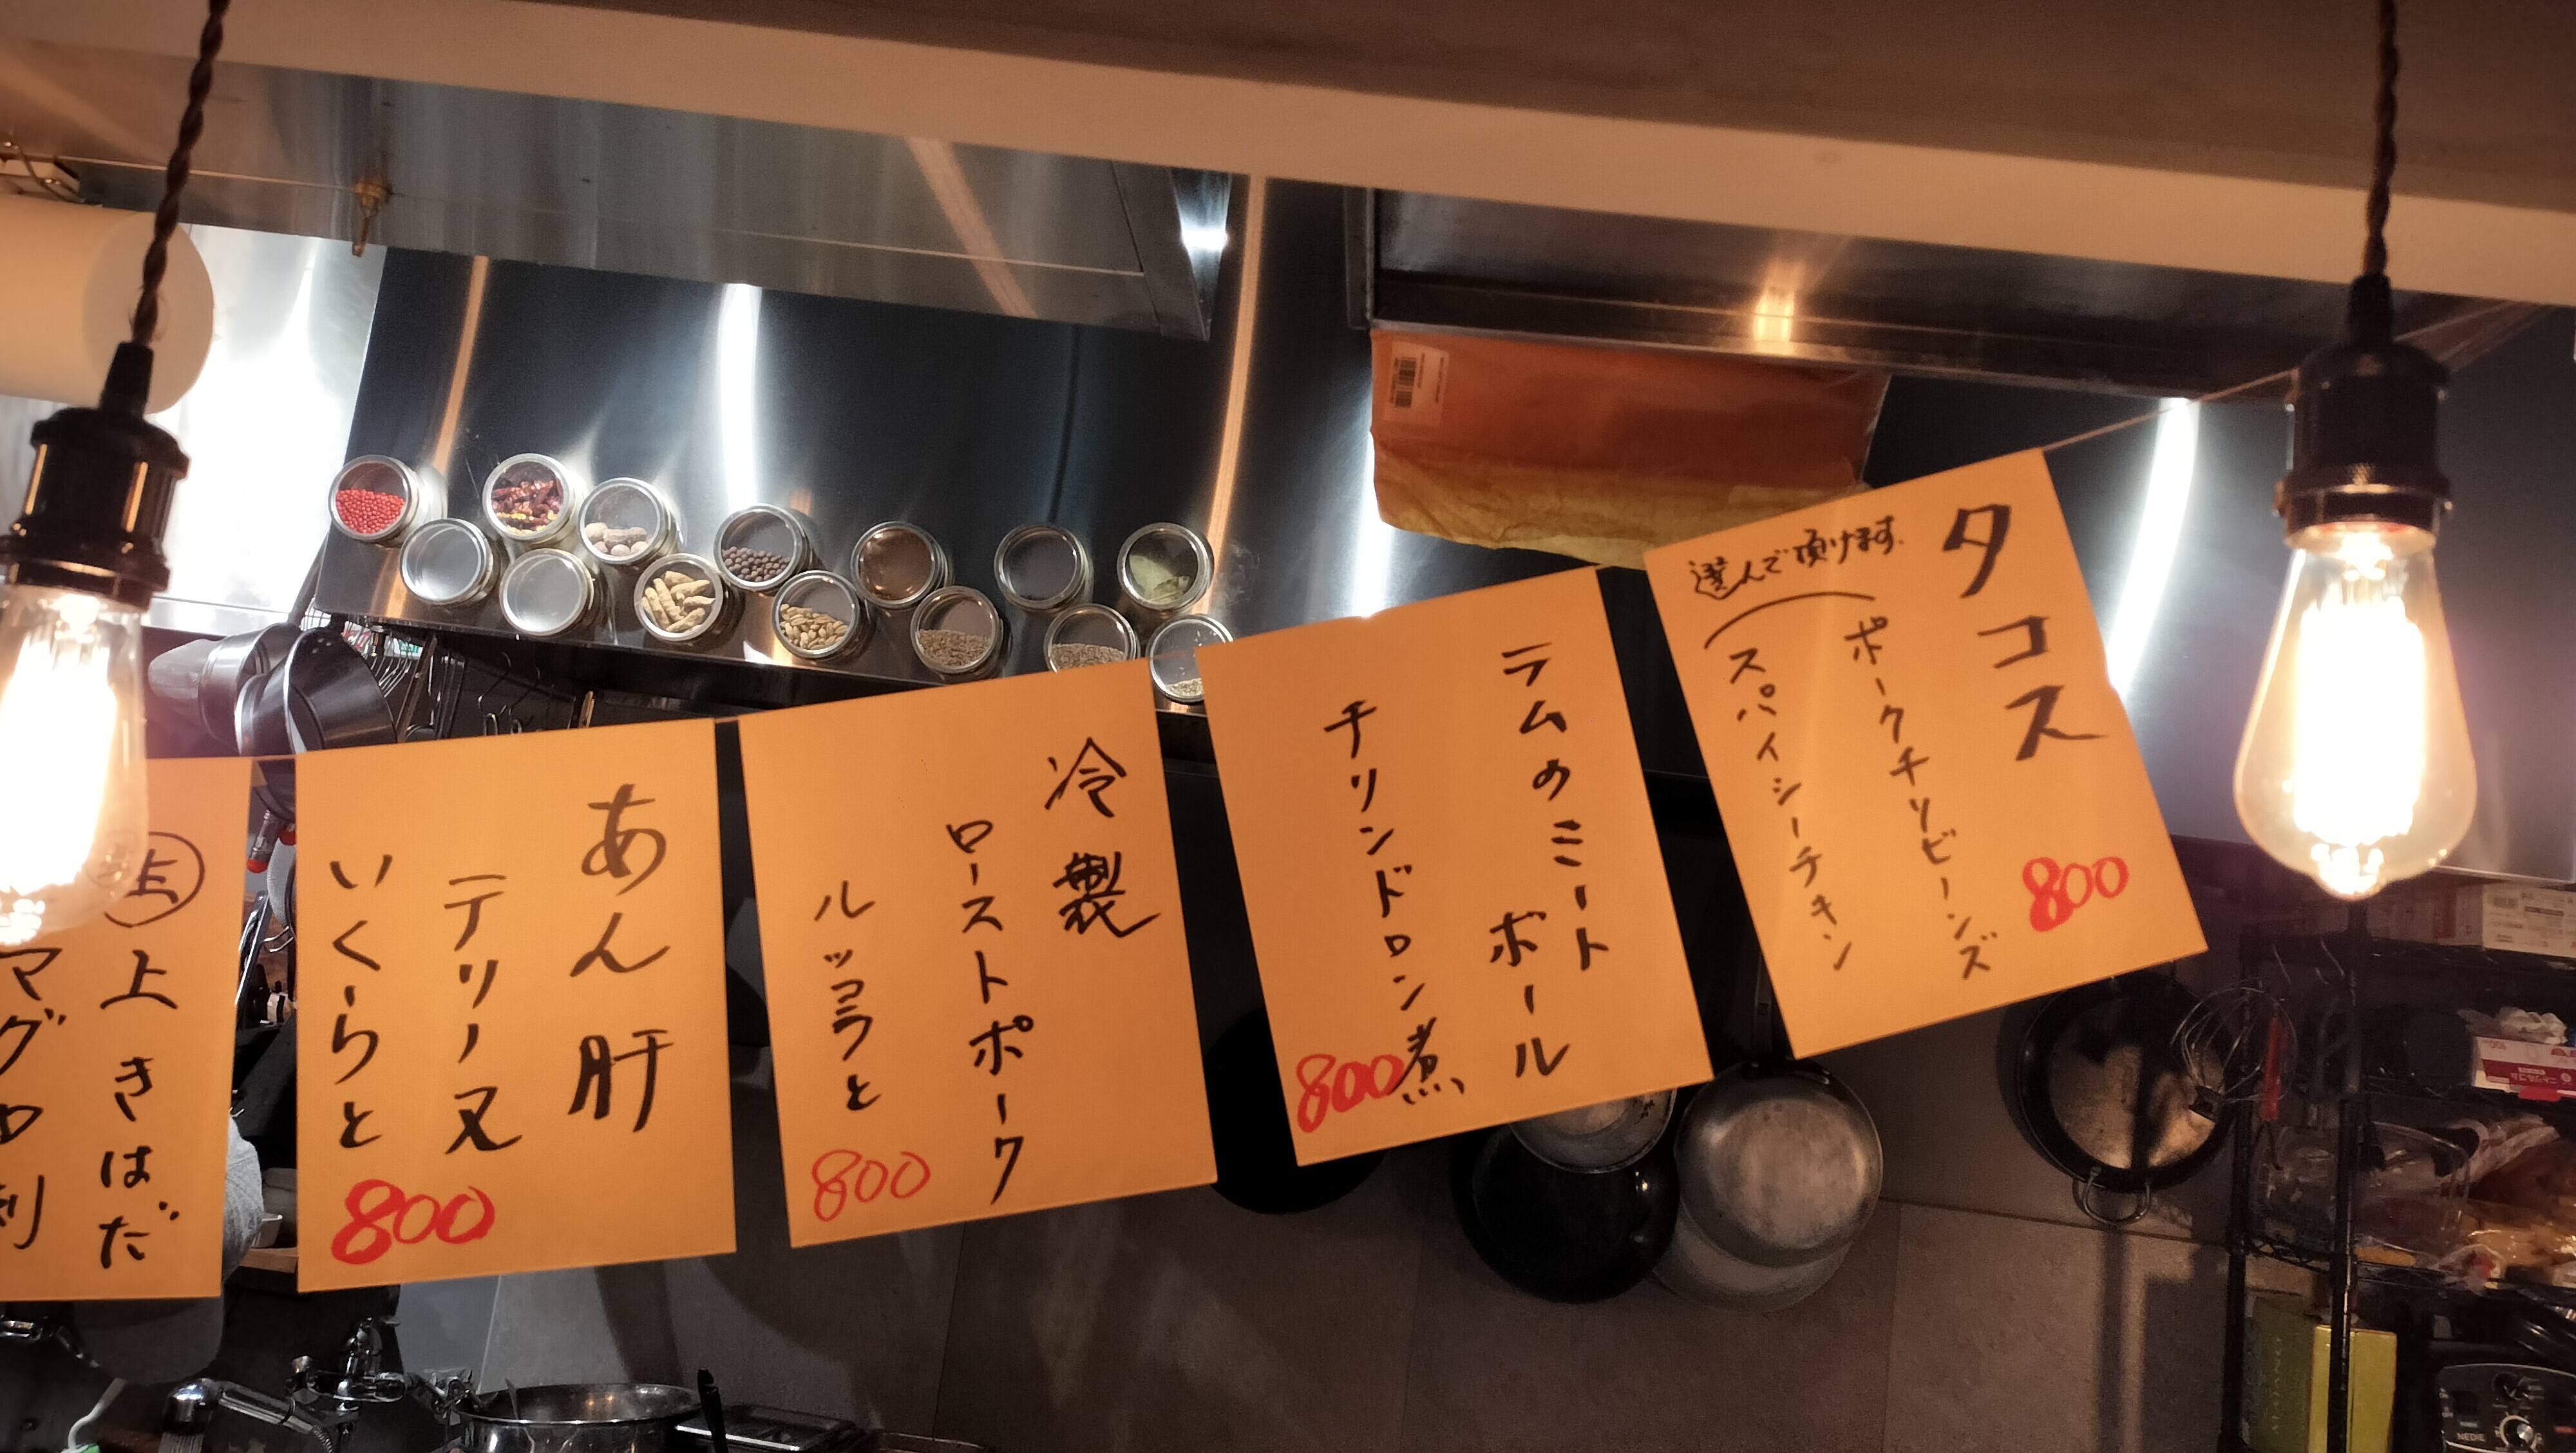 タコス
選んで頂けます。
ポークチリビーンズ
スパイシーチキン
800
ラムのミート
ボール
チリンドロン煮
800
冷製
ローストポーク
ルッコラと
800
あん肝
テリーヌ
いくらと
800
上きはだ
マグロ刺